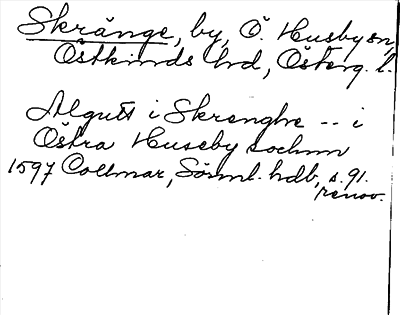 Skränge, by, Ö. Husby sn,
Östkinds hd, Österg. l.
Algutt i Skrenghe -- i
Östra Huseby sochnn
1597 Collmar, Sörml. hdb, s. 91.
renov.